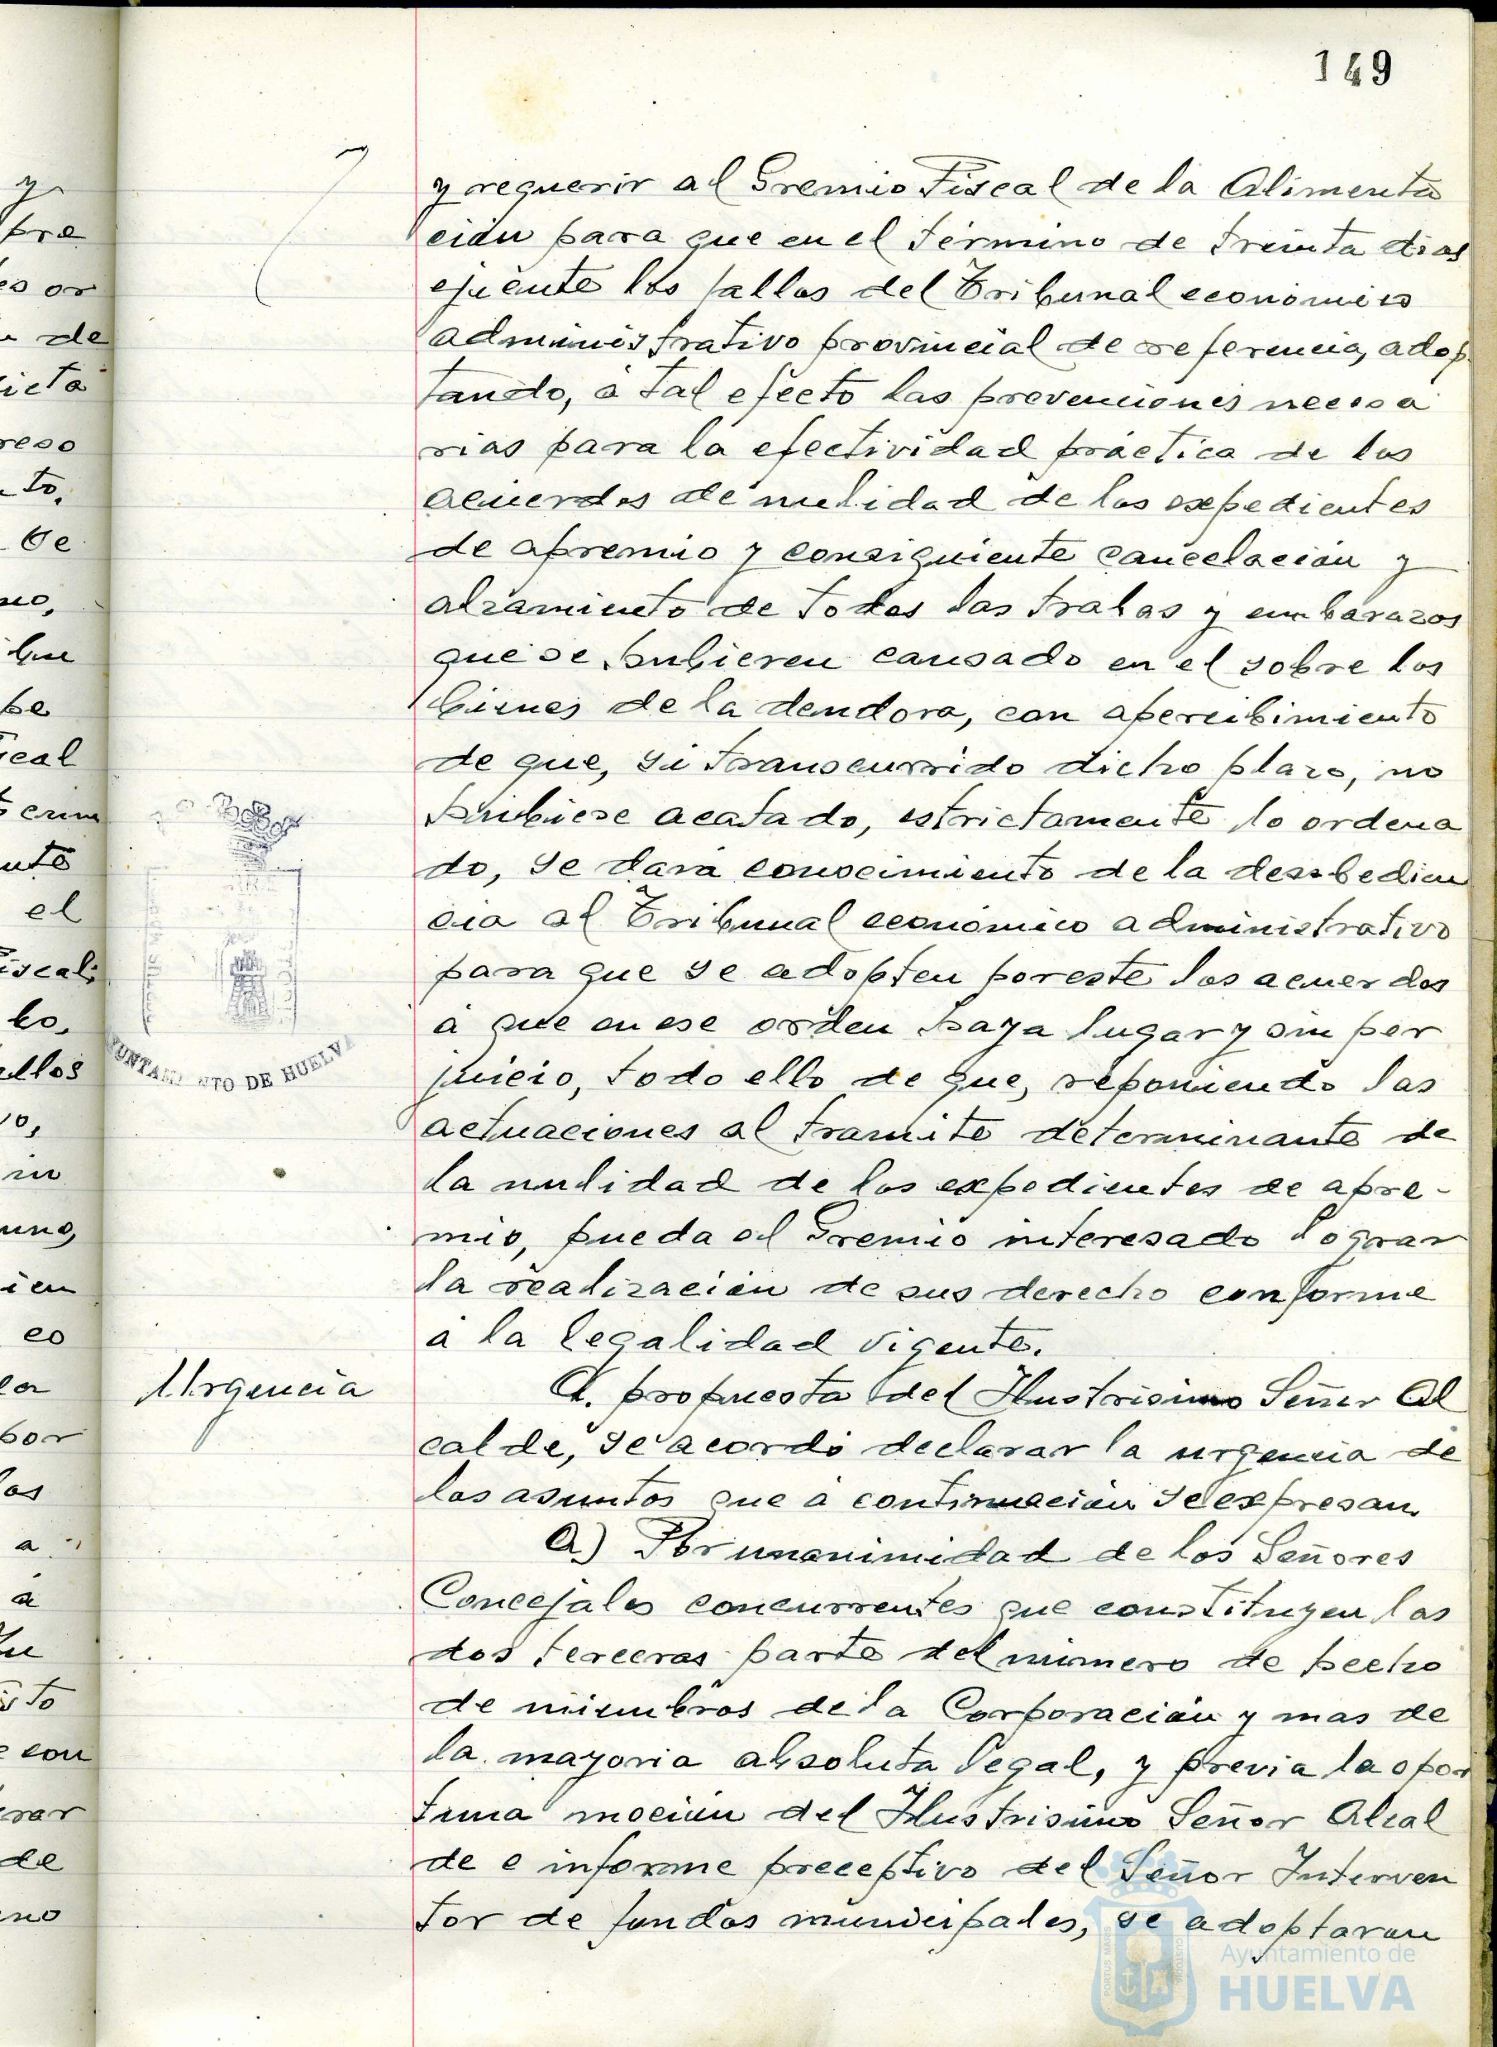 149
y requerir al Gremio Fiscal de la Alimenta
ción para que en el término de treinta dias
ejecute los fallos del Tribunal económico
administrativo provincial de referencia, adop
tando, á tal efecto las prevenciones necesa
rias para la efectividad práctica de los
acuerdos de nulidad de los expedientes
de apremio y consiguiente cancelación y
alzamiento de todos las trabas y embarazos
que se hubieren causado en el sobre los
bienes de la deudora, con apercibimiento
de que, si transcurrido dicho plazo, no
hubiese acatado, estrictamente lo ordena
do, se dará conocimiento de la desobedien
cia al Tribunal económico administrativo
para que se adopten por este los acuerdos
á que en ese orden haya lugar y sin per
juicio, todo ello de que, reponiendo las
actuaciones al tramite determinante de
la nulidad de los expedientes de apre-
mio, pueda el Gremio interesado lograr
la realización de sus derecho conforme
á la legalidad vigente.
Urgencia
A. propuesta del Ilustrisimo Señor Al
calde, se acordó declarar la urgencia de
los asuntos que á continuación se expresan.
A) Por unanimidad de los Señores
Concejales concurrentes que constituyen las
dos terceras parte del número de hecho
de miembros de la Corporación y mas de
la mayoria absoluta legal, y previa la opor
tuna moción del Ilustrisimo Señor Alcal
de e informe preceptivo del Señor Interven
tor de fondos municipales, se adoptaron
AYUNTAMIENTO DE HUELVA
Ayuntamiento de
HUELVA